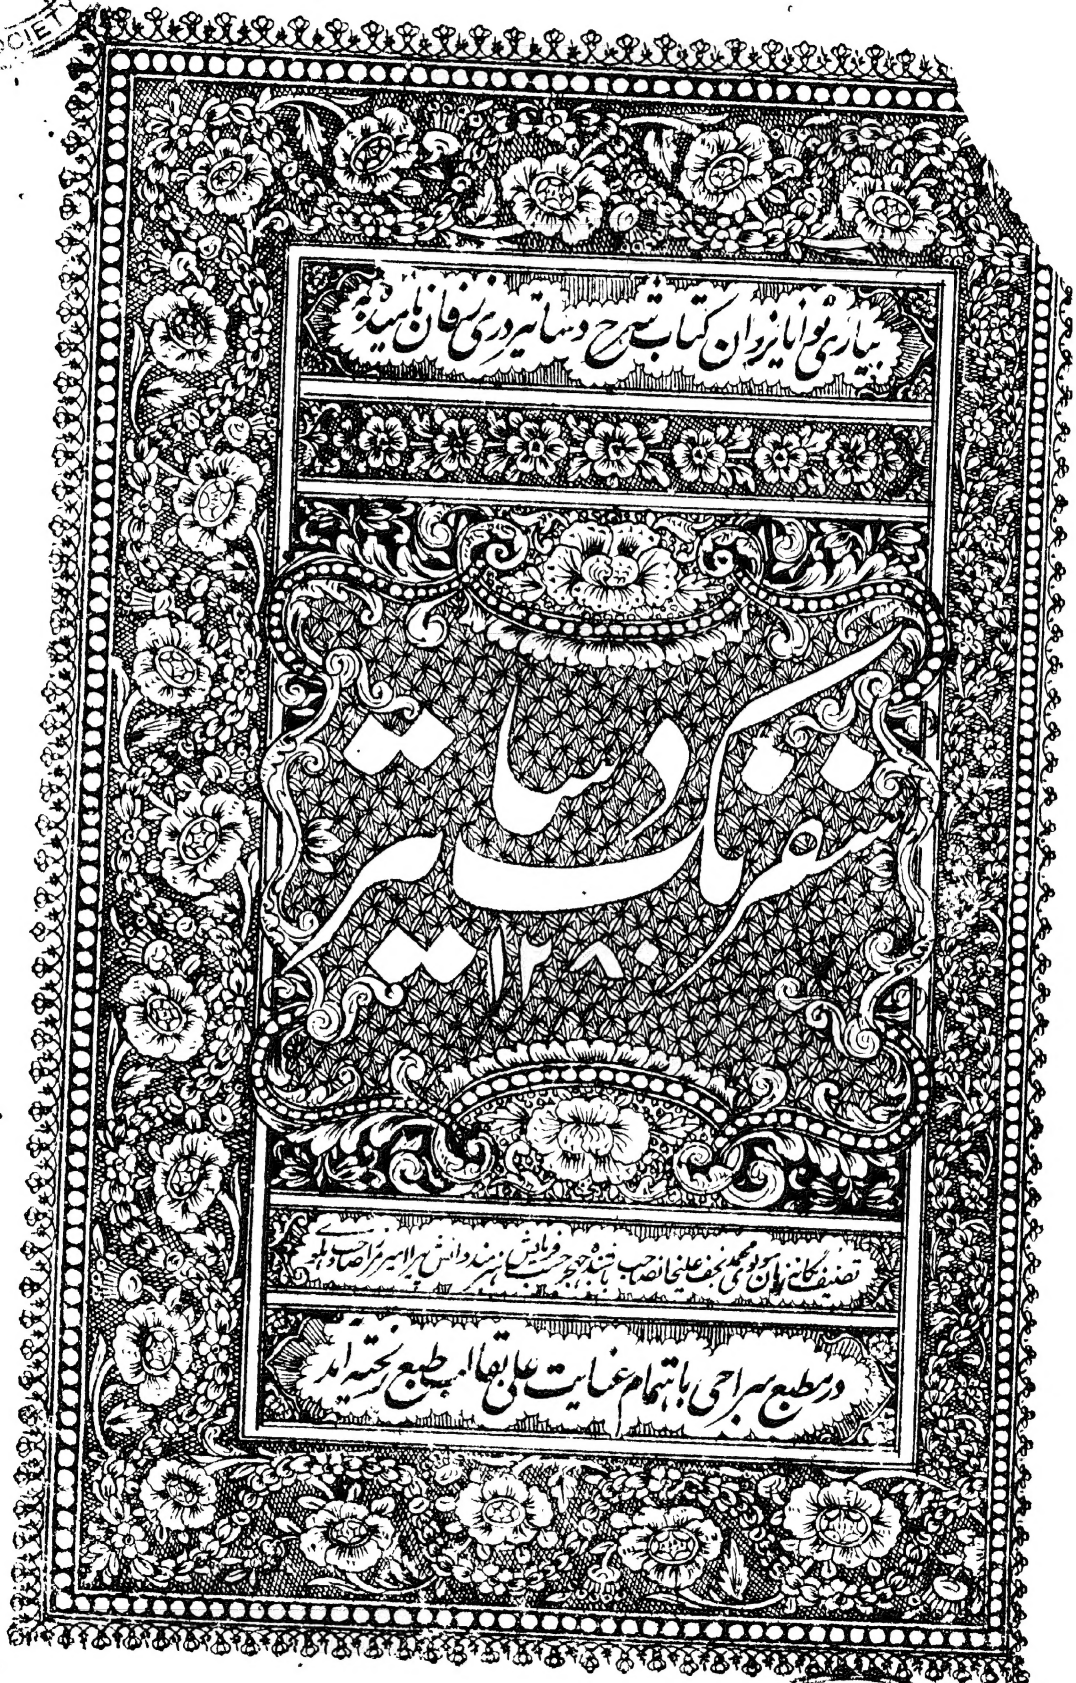 OCIETY
بیاری توانا یزدان کتاب شرح دساتیر دری زفان نامیده به
سفرنگ دساتیر
۱۲۸۰
تصنیف یگانه زمان مولوی محمد نجف علیخانصاحب باشنده ججهر هنرمند دانش پیرا امیر مرزا صاحب
در مطبع سراجی باهتمام عنایت علی بقالب طبع ریخته آمد